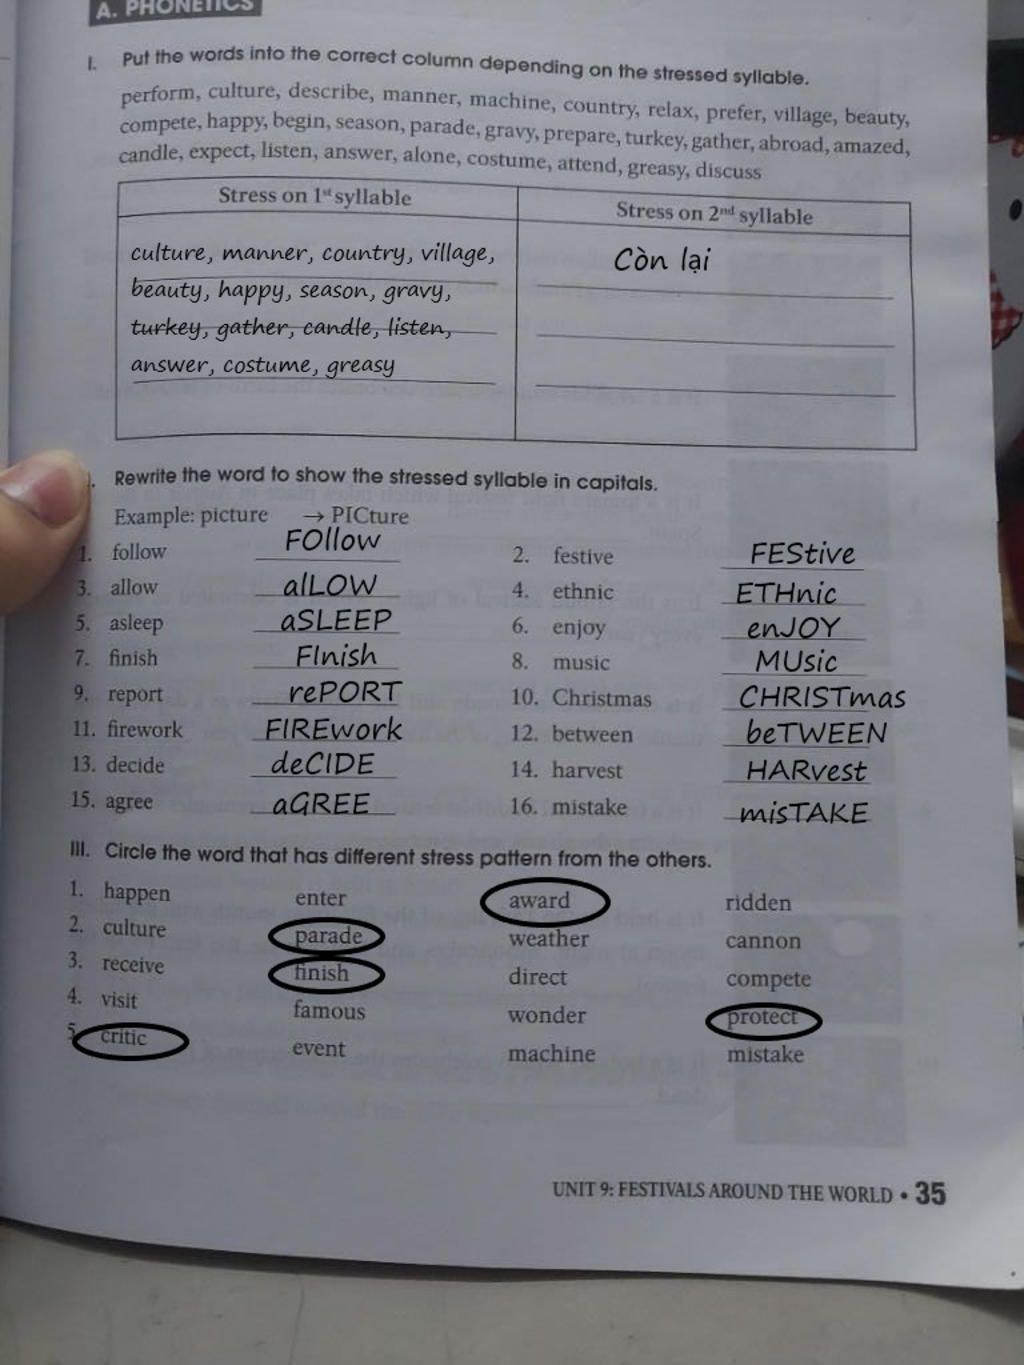 A. PHONETICS
I. Put the words into the correct column depending on the stressed syllable.
perform, culture, describe, manner, machine, country, relax, prefer, village, beauty,
compete, happy, begin, season, parade, gravy, prepare, turkey, gather, abroad, amazed,
candle, expect, listen, answer, alone, costume, attend, greasy, discuss
Stress on 1st syllable Stress on 2nd syllable
culture, manner, country, village, Còn lại
beauty, happy, season, gravy,
turkey, gather, candle, listen,
answer, costume, greasy
. Rewrite the word to show the stressed syllable in capitals.
Example: picture → PICture
1. follow FOllow 2. festive FEStive
3. allow alLOW 4. ethnic ETHnic
5. asleep aSLEEP 6. enjoy enJOY
7. finish FInish 8. music MUsic
9. report rePORT 10. Christmas CHRISTmas
11. firework FIREwork 12. between beTWEEN
13. decide deCIDE 14. harvest HARvest
15. agree aGREE 16. mistake misTAKE
III. Circle the word that has different stress pattern from the others.
1. happen enter award ridden
2. culture parade weather cannon
3. receive finish direct compete
4. visit famous wonder protect
5. critic event machine mistake
UNIT 9: FESTIVALS AROUND THE WORLD • 35